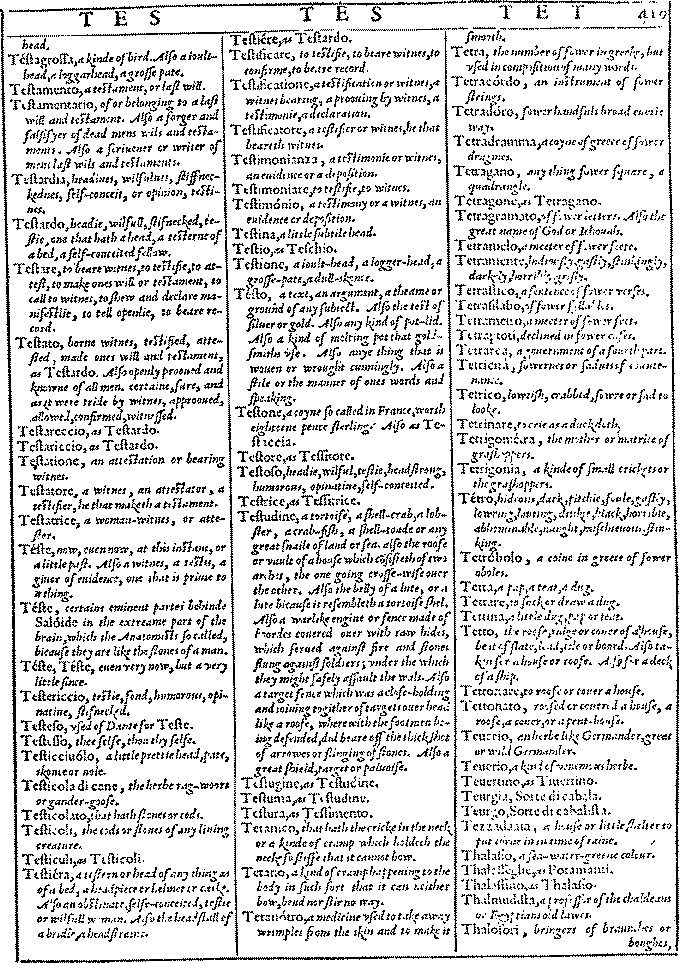 TES
TES
TET
419
head.
Testagrossa, a kinde of bird. Also a ioult-
head, a loggarhead, a grosse pate.
Testamento, a testament, or last will.
Testamentario, of or belonging to a last
will and testament. Also a forger and
falsifyer of dead mens wils and testa-
ments. Also a scriuener or writer of
mens last wils and testaments.
Testardia, headines, wilfulnes, stiffnec-
kednes, selfe-conceit, or opinion, testi-
nes.
Testardo, headie, wilfull, stifnecked, te-
stie, one that hath a head, a testerne of
a bed, a selfe-conceited fellow.
Testare, to beare witnes, to testifie, to at-
test, to make ones will or testament, to
call to witnes, to shew and declare ma-
nifestlie, to tell openlie, to beare re-
cord.
Testato, borne witnes, testified, atte-
sted, made ones will and testament,
as Testardo. Also openly prooued and
knowne of all men. certaine, sure, and
as it were tride by witnes, approoued,
allowed, confirmed, witnessed.
Testareccio, as Testardo.
Testariccio, as Testardo.
Testatione, an attestation or bearing
witnes.
Testatore, a witnes, an attestator, a
testifier, he that maketh a testament.
Testatrice, a woman-witnes, or atte-
stor.
Téste, now, euen now, at this instant, or
a little past. Also a witnes, a testis, a
giuer of euidence, one that is priuie to
a thing.
Téste, certaine eminent partes behinde
Salóide in the extreame part of the
braine, which the Anatomists so called,
bicause they are like the stones of a man.
Téste, Téste, euen very now, but a very
little since.
Testericcio, testie, fond, humorous, opi-
natiue, stifnecked.
Testeso, vsed of Dante for Teste.
Testesso, thee selfe, thou thy selfe.
Testicciuólo, a little prettie head, pate,
skonce or nole.
Testicola di cane, the herbe rag-woort
or gander-goose.
Testicolato, that hath stones or cods.
Testicoli, the cods or stones of any liuing
creature.
Testiculi, as Testicoli.
Testiéra, a testern or head of any thing as
of a bed, a headpiece or helmet or caske.
Also an obstinate, selfe-conceited, testie
or wilfull woman. Also the headstall of
a bridle, a headstraine.
Testiére, as Testardo.
Testificare, to testifie, to beare witnes, to
confirme, to beare record.
Testificatione, a testification or witnes, a
witnes bearing, a proouing by witnes, a
testimonie, a declaration.
Testificatore, a testifier or witnes, he that
beareth witnes.
Testimonianza, a testimonie or witnes,
an euidence or a deposition.
Testimoniare, to testifie, to witnes.
Testimónio, a testimony or a witnes, an
euidence or deposition.
Testina, a little subtile head.
Testio, as Teschio.
Testione, a ioult-head, a logger-head, a
grosse-pate, a dull-skonce.
Tésto, a text, an argument, a theame or
ground of any subiect. Also the test of
siluer or gold. Also any kind of pot-lid.
Also a kinde of melting pot that gold-
smiths vse. Also anye thing that is
wouen or wrought cunningly. Also a
stile or the manner of ones words and
speaking.
Testone, a coyne so called in France, worth
eighteene pence sterling. Also as Te-
sticcia.
Testore, as Tessitore.
Testoso, headie, wilful, testie, headstrong,
humorous, opinatiue, selfe-conceited.
Testrice, as Tessitrice.
Testudine, a tortoise, a shell-crab, a lob-
ster, a crab-fish, a shell-toade or any
great snaile of land or sea. also the roofe
or vault of a house which cōsisteth of two
arches, the one going crosse-wise ouer
the other. Also the belly of a lute, or a
lute bicause it resembleth a tortoise shel.
Also a warlike engine or fence made of
boordes couered ouer with raw hides,
which serued against fire and stones
flung against soldiers, vnder the which
they might safely assault the wals. Also
a target fence which was a close-holding
and ioining togither of target ouer head
like a roofe, where with the footmen be-
ing defended, did beare off the thick shot
of arrowes or slinging of stones. Also a
great shield, target or paluoise.
Testugine, as Testudine.
Testuma, as Testudine.
Testura, as Tessimento.
Tetanico, that hath the cricke in the neck
or a kinde of cramp which holdeth the
neck so stiffe that it cannot bow.
Tetano, a kind of cramp happening to the
body in such sort that it can neither
bow, bend nor stir no way.
Tetanótro, a medicine vsed to take away
wrimples from the skin and to make it
smooth.
Tetra, the number of fower in greeke, but
vsed in composition of many words.
Tetracórdo, an instrument of fower
strings.
Tetradóro, fower handfuls broad euerie
way.
Tetradramma, a coyne of greece of fower
dragmes.
Tetragano, any thing fower square, a
quadrangle.
Tetragone, as Tetragano.
Tetragramato, of fower letters. Also the
great name of God or Iehouah.
Tetramelo, a meeter of fower feete.
Tetramente, hideously, gastly, stinkingly,
darkly, horribly, grisly.
Tetrastico, a sentence of fower verses.
Tetrasilabo, of fower sillables.
Tetrameno, a meeter of fower feet.
Tetraptoti, declined in fower cases.
Tetrarca, a gouernment of a fourth part.
Tetricità, sowernes or sadnes of counte-
nance.
Tetrico, lowrish, crabbed, sowre or sad to
looke.
Tetrinare, to crie as a duck doth.
Tetrigométra, the mother or matrice of
grashoppers.
Tetrigonia, a kinde of small crickets or
the grashoppers.
Tétro, hideous, dark, pitchie, foule, gastly,
lowring, louring, duskie, black, horrible,
abhominable, naught, mischieuous, stin-
king.
Tetróbolo, a coine in greece of fower
oboles.
Tetta, a pap, a teat, a dug.
Tettare, to suck or draw a dug.
Tettina, a little dug, pap or teat.
Tetto, the roofe, ridge or couer of a house,
be it of slate, lead, tile or board. Also ta-
ken for a house or roofe. Also for a deck
of a ship.
Tettonare, to roofe or couer a house.
Tettonato, roofed or couered a house, a
roofe, a couer, or a pent-house.
Teucrio, an herbe like Germander, great
or wild Germander.
Teuerio, a kind of venemous herbe.
Teuertino, as Tiuertino.
Teurgia, Sorte di cabala.
Teurgo, Sorte di cabalista.
Tezzadiaia, a house or little shelter to
put corne in in time of raine.
Thalasio, a sea-water-greene colour.
as Potamanti.
as Thalasio.
Thalmudista, a professor of the chaldeans
or Egyptians old lawes.
Thalofori, bringers of braunches or
boughes,